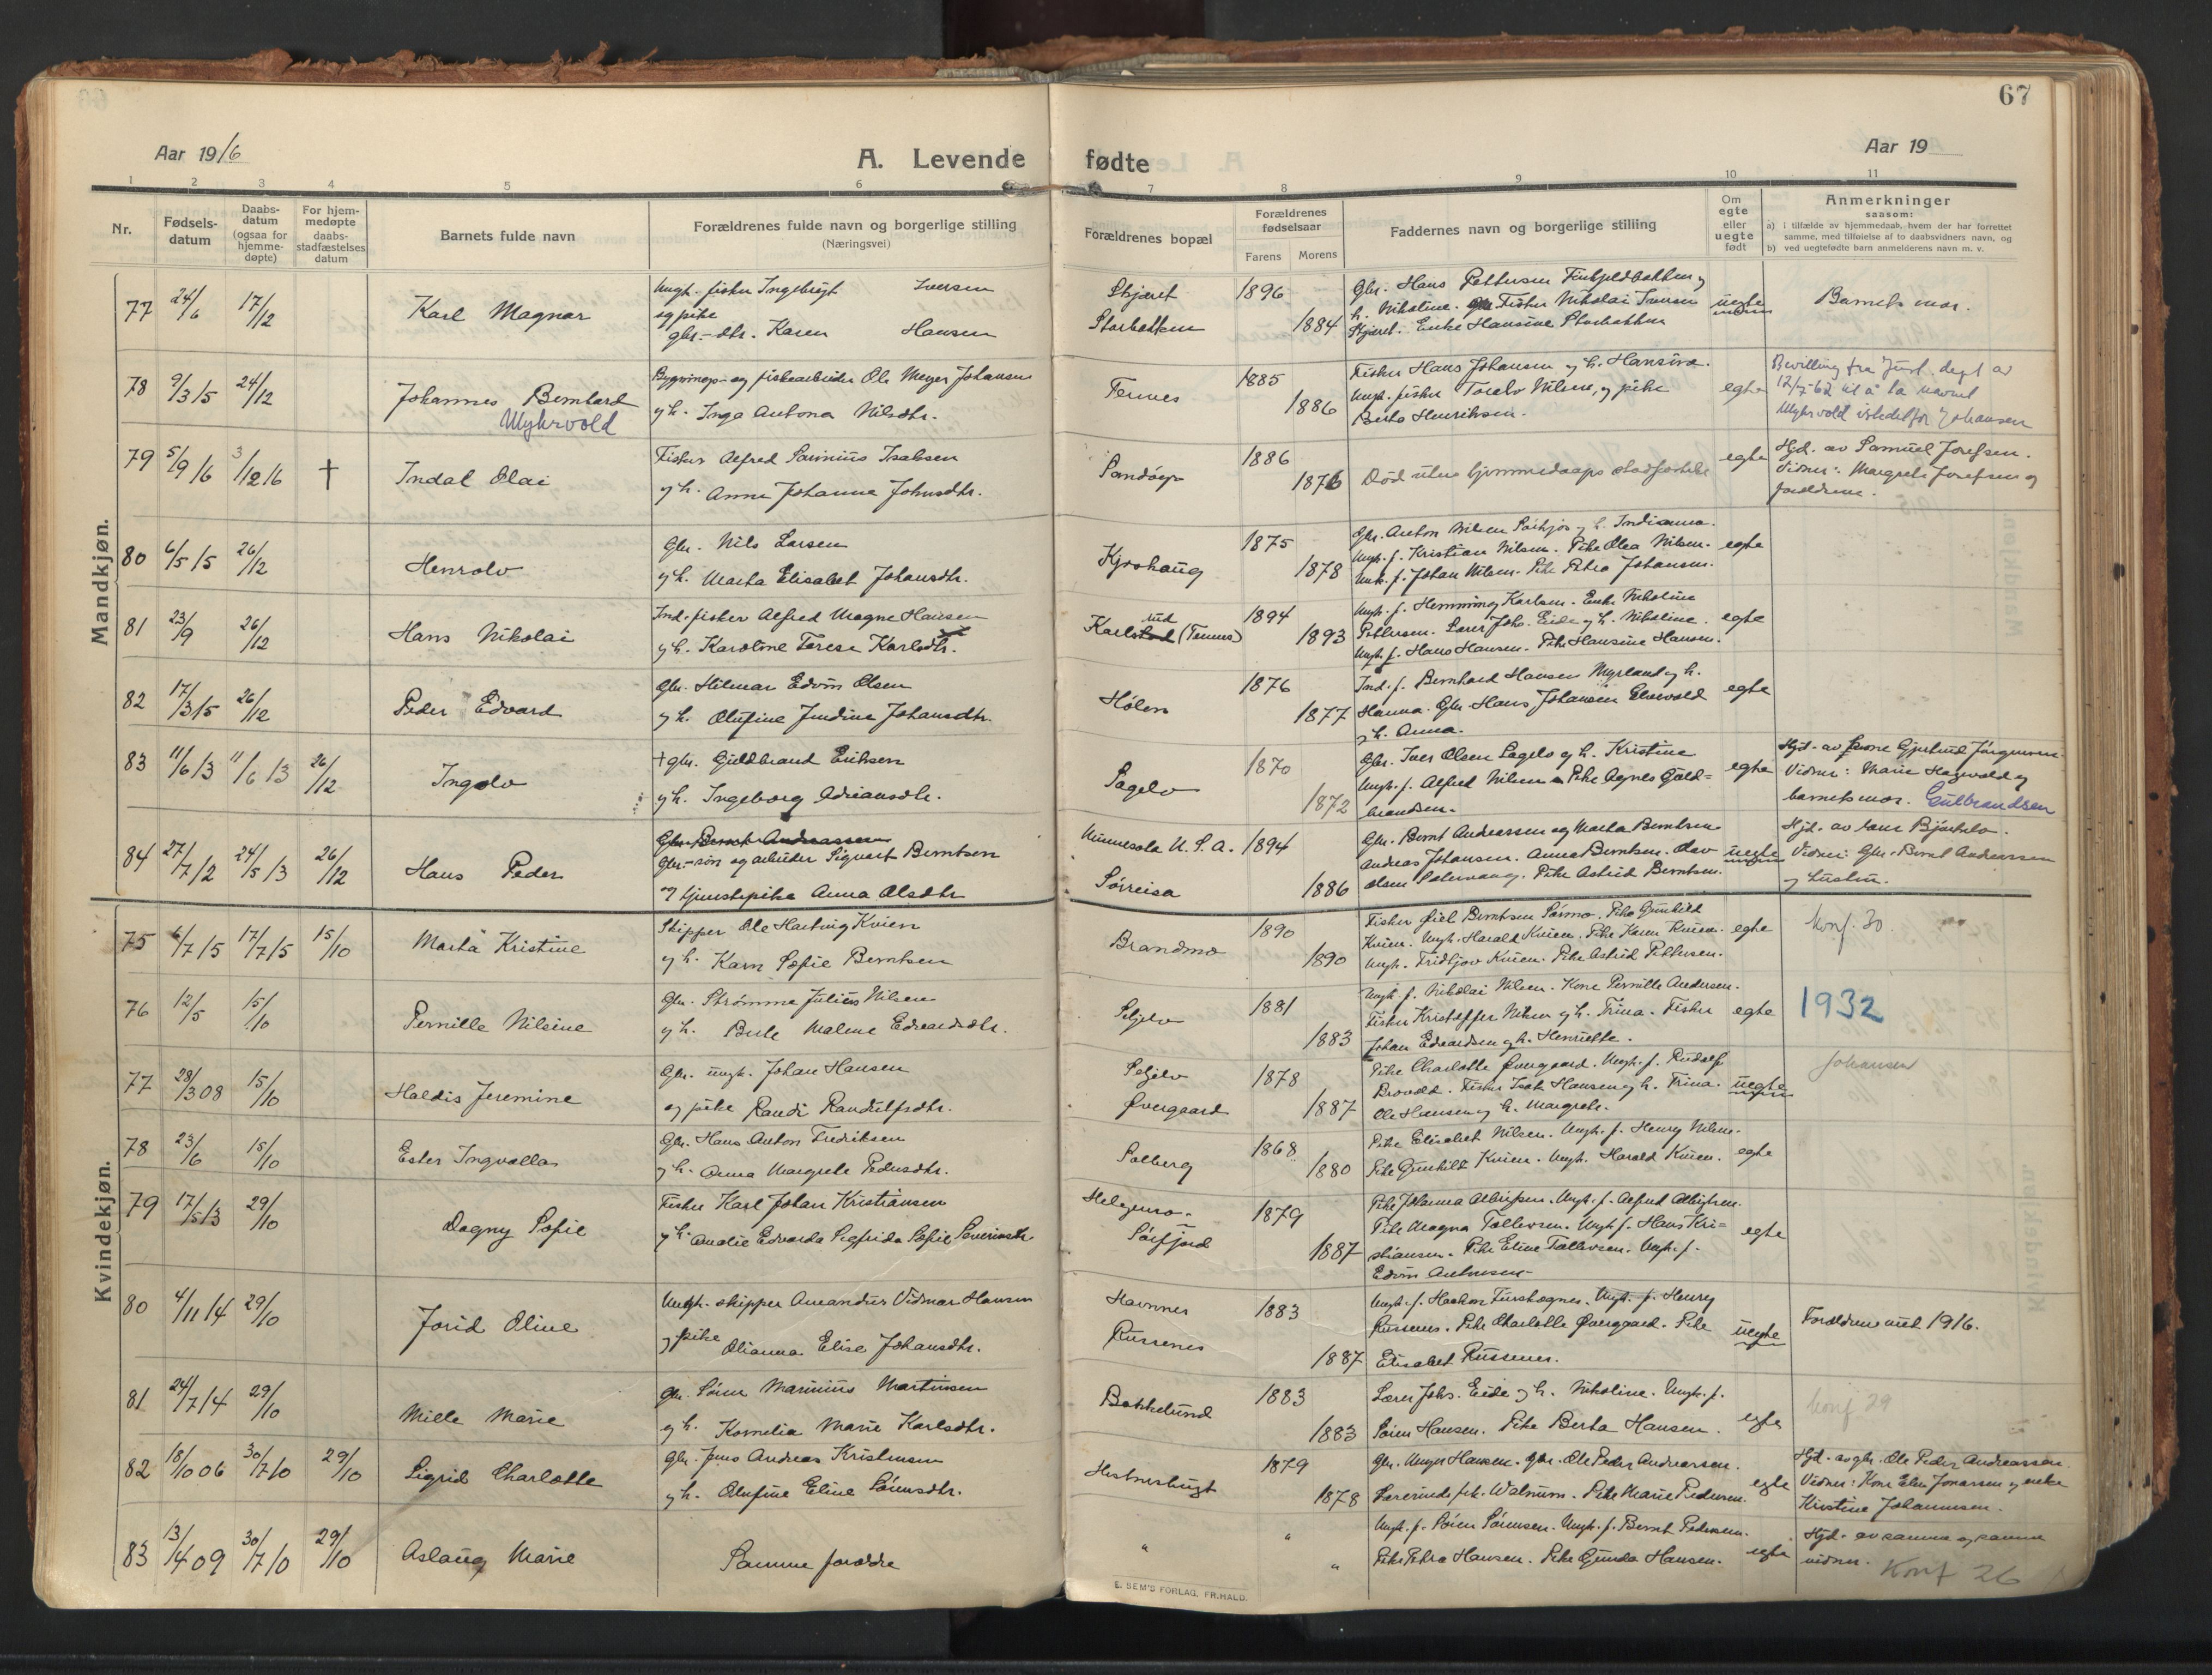 67
Aar 1916
A. Levende fødte
Aar 19
1 2 3 4 5 6 7 8 9 10 11
Nr.
Fødsels-
datum
Daabs-
datum
(ogsaa for
hjemme-
døpte)
For hjem-
medøpte
daabs-
stadfæstelses
datum
Barnets fulde navn
Forældrenes fulde navn og borgerlige stilling
(Næringsvei)
Forældrenes bopæl
Forældrenes
fødselsaar
Farens Morens
Faddernes navn og borgerlige stilling
Om
egte
eller
uegte
født
Anmerkninger
saasom:
a) i tilfælde av hjemmedaab, hvem der har forrettet
samme, med tilføielse af to daabsvidners navn, og
b) ved uegtefødte barn anmelderens navn m. v.
Mandkjøn.
77 24/6 17/12 Karl Magnar
Ungk. fisker Ingebrigt Iversen
og pike
gbr.-dtr. Karen Hansen
Storbakken
1896
1884
Gbr. Hans Pettersen
h. Nikoline. Fisker Nikolai Iversen
Enke Hansine Storbakken
uegte
Barnets mor.
78 9/3 15 24/12 Johannes Berntard
Myhrvold
Bygnings- og fiskearbeider Ole Meyer Johansen
og h. Inga Antona Nilsdtr.
Tennes
1885
1886
Fisker Hans Johansen og h. Hansine.
Ungk. fisker Toralv Nilsen, og pike
Berta Henriksen.
egte
Bevilling fra Just. dept av
12/7-62 til å ta navnet
Myhrvold istedetfor Johansen
79 5/9 16 3/12 16 † Indal Olai
Fisker Alfred Isaksen
og h. Anna Johanna Johnsdtr.
1886
1876
Død uten hjemmedaaps stadfæstelse
egte
Hjd. av Samuel Josefsen.
Vidner: Margrete Josefsen og
forældrene.
80 6/5 15 26/12 Henrolv
Gbr. Nils Larsen
og h. Marta Elisabet Johansdtr.
Kjoshaug
1875
1878
Gbr. Anton Nilsen og h. Indianna.
Ungk. f. Kristian Nilsen. Pike Olea Nilsen.
Ungk. f. Johan Nilsen. Pike Petra Johansen.
egte
81 23/9 26/12 Hans Nikolai
Ind. fisker Alfred Magne Hansen
og h. Karoline Terese Karlsdtr.
(Tennes)
1894
1893
Ungk. f. Henning Karlsen. Enke Nikoline
Pettersen. Lærer Johs. Eide og h. Nikoline.
Ungk. f. Hans Hansen. Pike Hansine Hansen.
egte
82 17/3 15 26/12 Peder Edvard
Gbr. Hilmar Edvin Olsen
og h. Olufine Jordine Johansdtr.
Holen
1876
1877
Ind. f. Bernhard Hansen Myrland og h.
Hanna. Gbr. Hans Johansen Elvevold
og h. Anna.
egte
83 11/6 13 11/6 13 26/12 Ingolv
† gbr. Guldbrand Eriksen
og h. Ingeborg Adriansdtr.
Sagelv
1870
1872
Gbr. Iver Olsen Sagelv og h. Kristine
Ungk. f. Alfred Nilsen Pike Agnes Guld=
brandsen.
egte
Hjd. av kone Gjertrud Jørgensen.
Vidner: Marie Hagvold og
barnets mor. Gulbrandsen
84 27/7 12 24/5 13 26/12 Hans Peder
Gbr. Bernt Andreassen
Gbr.-søn og arbeider Sigvart Berntsen
og tjenestepike Anna Olsdtr.
Minnesota U.S.A.
Sørreisa
1894
1886
Gbr. Bernt Andreassen og Marta Berntsen
Andreas Johansen. Anna Berntsen. Olav
Olsen. Pike Astrid Berntsen.
uegte
Vidner: Gbr. Bernt Andreassen
og hustru.
Kvindekjøn.
75 6/7 15 17/7 15 15/10 Marta Kristine
Skipper Ole Hartvig Kvien
og h. Karn Sofie Berntsen
Brandmo
1890
1890
Fisker Berntsen Sørmo. Pike Gunhild
Kvien. Ungk. Harald Kvien. Pike Karen Kvien.
Ungk. Fridtjov Kvien. Pike Astrid Pettersen.
egte
Konf. 30.
76 12/5 15/10 Pernille Nilsine
Gbr. Strømme Julius Nilsen
og h. Malene Edvardsdtr.
Seljelv
1881
1883
Ungk. f. Nikolai Nilsen. Kone Pernille Andersen.
Fisker Kristoffer Nilsen og h. Trina. Fisker
Johan Edvardsen og h. Henriette.
egte
1932
77 28/3 08 15/10 Haldis Jeremine
Gbr. ungk. Johan Hansen
og pike Randi Randulfsdtr.
Seljelv
Øvergaard
1878
1887
Pike Charlotte Øvergaard. Ungk. f. Rudolf
Brovold. Fisker Isak Hansen og h. Trina.
Ole Hansen og h. Margrete.
uegte
Johansen
78 23/6 15/10 Ester Ingvalla
Gbr. Hans Anton Fredriksen
og h. Anna Margrete Pedersdtr.
Solberg
1868
1880
Pike Elisabet Nilsen. Ungk. f. Henry Nilsen.
Pike Gunhild Kvien. Ungk. Harald Kvien.
egte
79 17/5 13 29/10 Dagny Sofie
Fisker Karl Johan Kristiansen
og h. Amalie Edvarda Sigfrida Sofie Severinsdtr.
Sørfjord
1879
1887
Pike Johanna Albrigtsen. Ungk. f. Alfred Albrigtsen.
Pike Magna Tollevsen. Ungk. f. Hans Kri=
stiansen. Pike Eline Tollevsen. Ungk. f.
Edvin Antonsen
egte
80 4/11 14 29/10 Jorid Oline
Ungk. skipper Amandus Vidmar Hansen
og pike Olianna Elise Johansdtr.
Havnnes
Russenes
1883
1887
Ungk. f. Haakon Furstrognes. Ungk. f. Henry
Russenes. Pike Charlotte Øvergaard. Pike
Elisabet Russenes.
uegte
Forældrene viet 1916.
81 24/7 14 29/10 Mille Marie
Gbr. Søren Marinius Martinsen
og h. Kornelia Marie Karlsdtr.
Bakkelund
1883
1883
Lærer Johs. Eide og h. Nikoline. Ungk. f.
Søren Hansen. Pike Berta Hansen.
egte
Konf 29
82 18/10 06 30/7 10 29/10 Sigrid Charlotte
Gbr. Jens Andreas Kristensen
og h. Olufine Eline Sørensdtr.
Hestnesbugt
1879
1878
Gbr. Meyer Hansen. Gbr. Ole Peder Andreassen.
Lærerinde frk. Walnum. Pike Marie Pedersen.
egte
Hjd. av gbr. Ole Peder Andreassen.
Vidner: Kone Elen Jonassen og enke
Kirstine Johannesen.
83 13/4 09 30/7 10 29/10 Aslaug Marie
Samme forældre
" " "
Ungk. f. Søren Sørensen. Ungk. f. Bernt Pedersen.
Pike Petra Hansen. Pike Gunda Hansen.
egte
Hjd. av samme og samme
vidner. Konf 26
E. SEM'S FORLAG, FR.HALD.